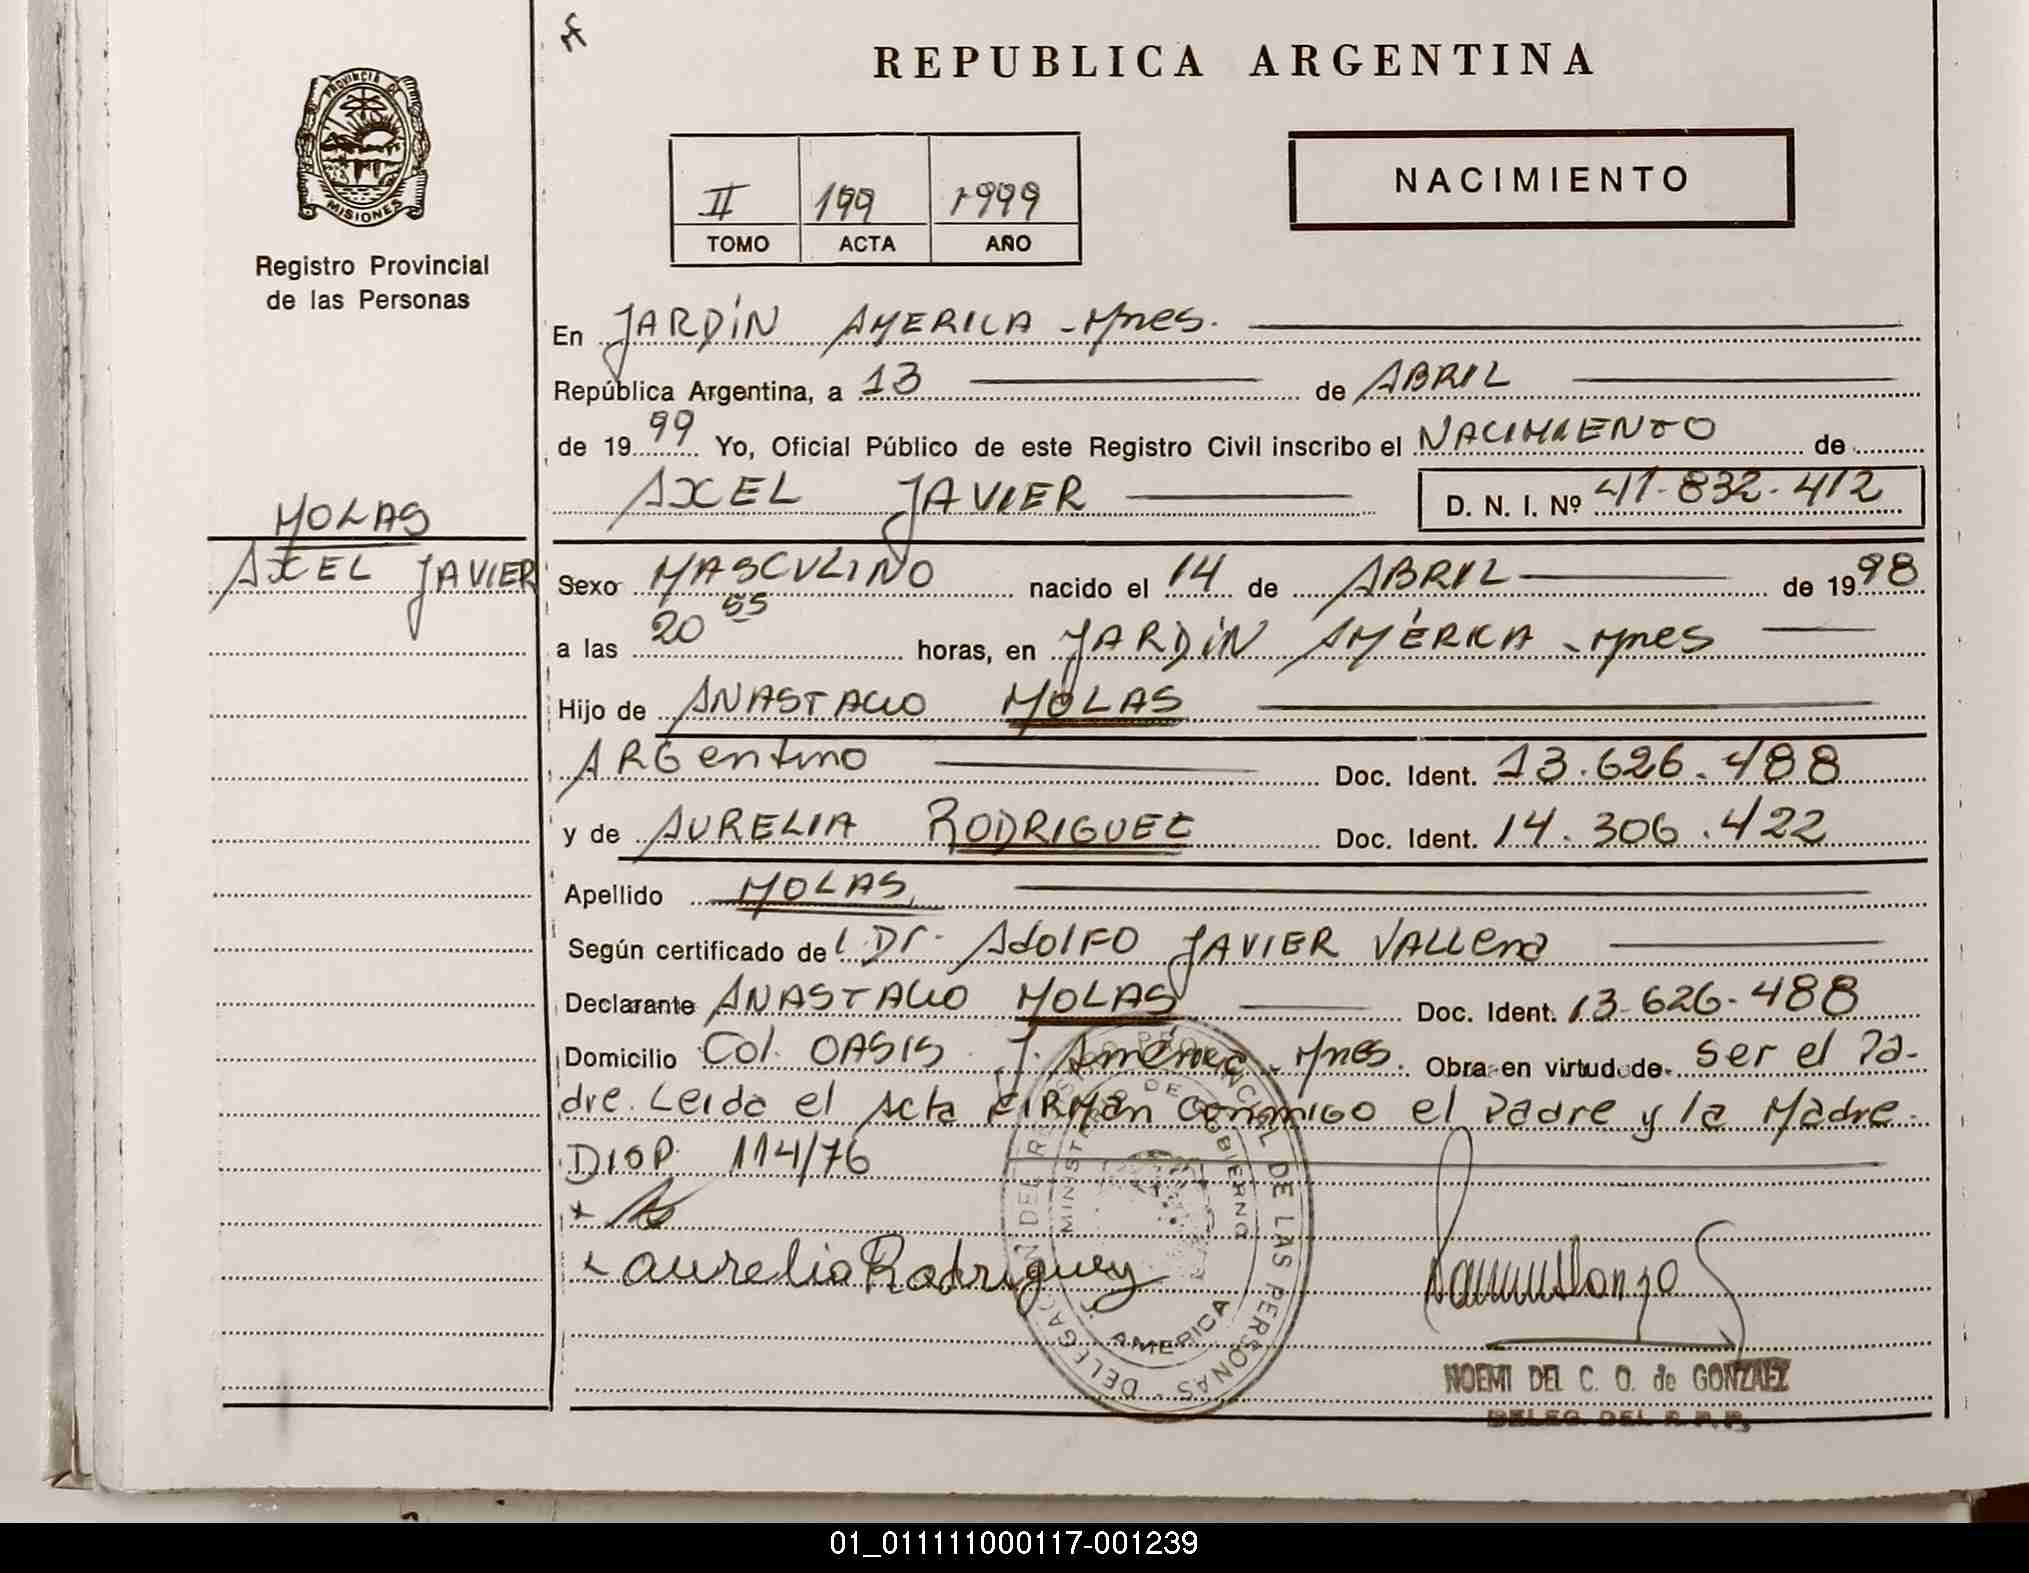 REPUBLICA ARGENTINA
PROVINCIA DE
MISIONES
Registro Provincial
de las Personas
II 199 1999
TOMO ACTA AÑO
NACIMIENTO
En JARDÍN AMERICA - Mnes.
República Argentina, a 13 de ABRIL
de 1999 Yo, Oficial Público de este Registro Civil inscribo el NACIMIENTO de
AXEL JAVIER D. N. I. Nº 41-832-412
MOLAS
AXEL JAVIER
Sexo MASCULINO nacido el 14 de ABRIL de 1998
a las 20 55 horas, en JARDÍN AMÉRICA - Mnes
Hijo de ANASTACIO MOLAS
ARGentino Doc. Ident. 13.626.488
y de AURELIA RODRIGUEZ Doc. Ident. 14.306.422
Apellido MOLAS
Según certificado de Dr. AdOlFO JAVIER
Declarante ANASTACIO MOLAS Doc. Ident. 13-626-488
Domicilio Col. OASIS J. América - Mnes. Obra en virtud de ser el Pa-
dre. Leida el Acta FIRMAn ConmIGO el Padre y la Madre.
DISP. 114/76
x
x aurelia Rodriguez
DELEGACION DEL REGISTRO PROVINCIAL DE LAS PERSONAS
MINISTERIO DE GOBIERNO
AMERICA
NOEMI DEL C. O. de GONZALEZ
DELEG. DEL R.P.P.
01_011111000117-001239